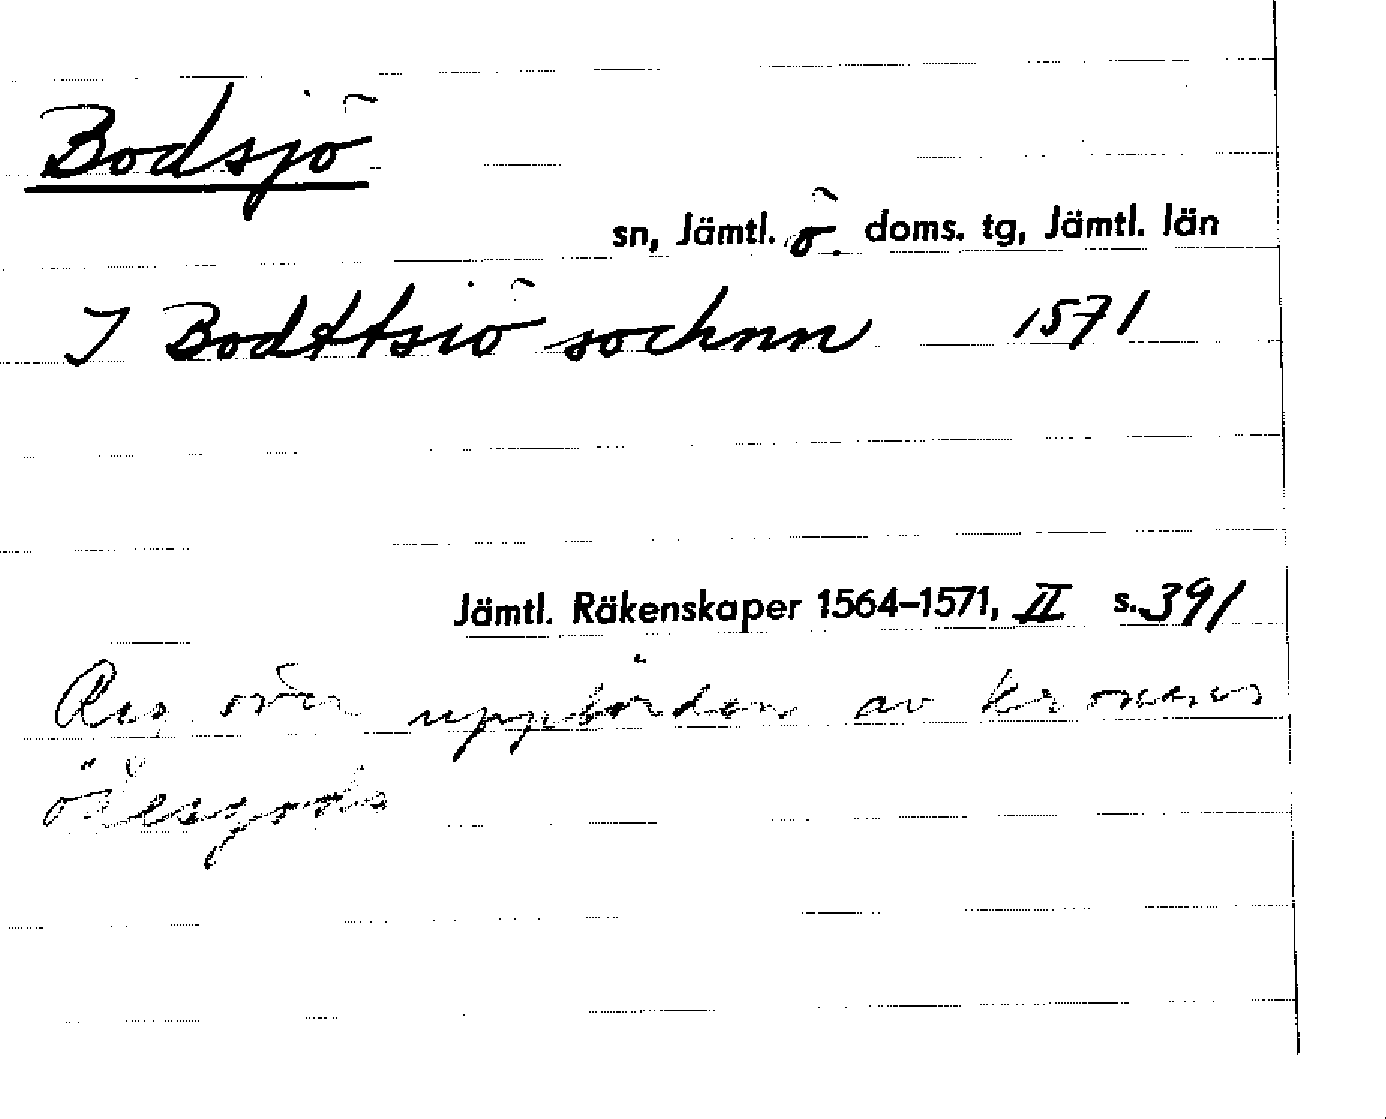 Bodsjö
sn, Jämtl. ö. doms. tg, Jämtl. län
I Bodttsiö sochnn 1571
Jämtl. Räkenskaper 1564–1571, II s. 391
Reg över uppbörden av kronans
ödesgods